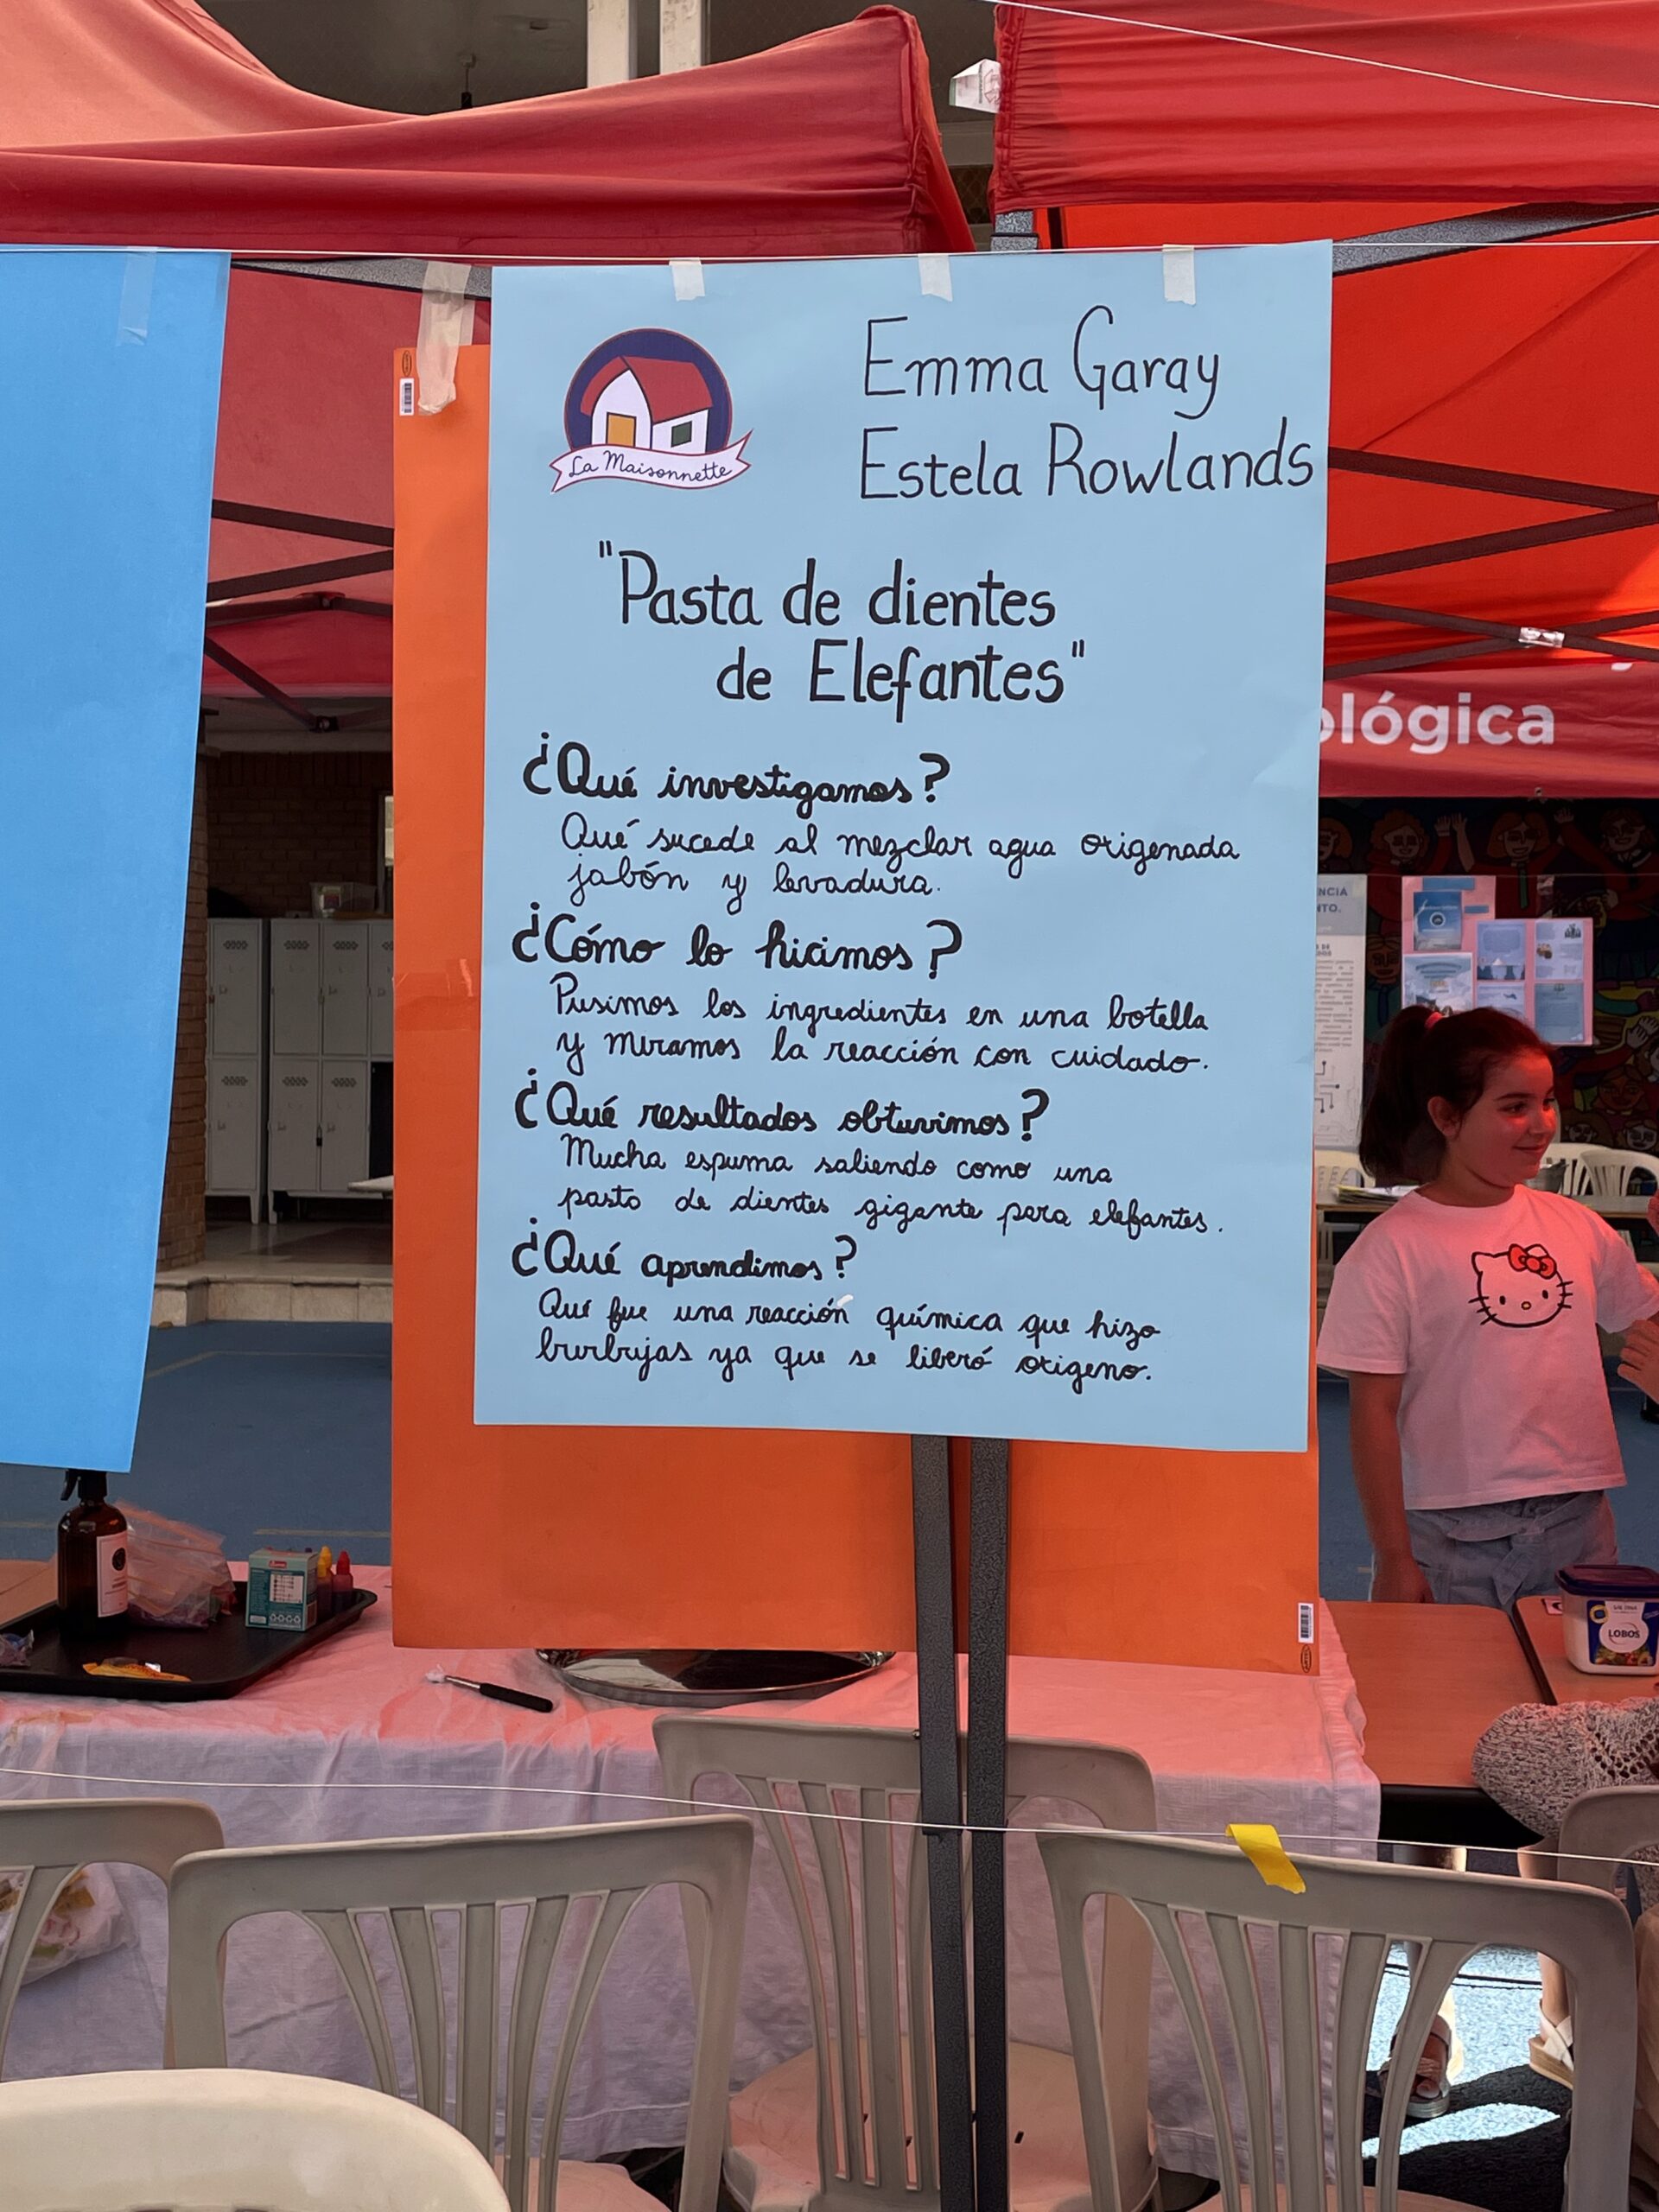 La Maisonnette
Emma Garay
Estela Rowlands
"Pasta de dientes
de Elefantes"
¿Qué investigamos?
Qué sucede al mezclar agua oxigenada
jabón y levadura.
¿Cómo lo hicimos?
Pusimos los ingredientes en una botella
y miramos la reacción con cuidado.
¿Qué resultados obtuvimos?
Mucha espuma saliendo como una
pasta de dientes gigante para elefantes.
¿Qué aprendimos?
Que fue una reacción química que hizo
burbujas ya que se liberó oxigeno.
ológica
LOBOS